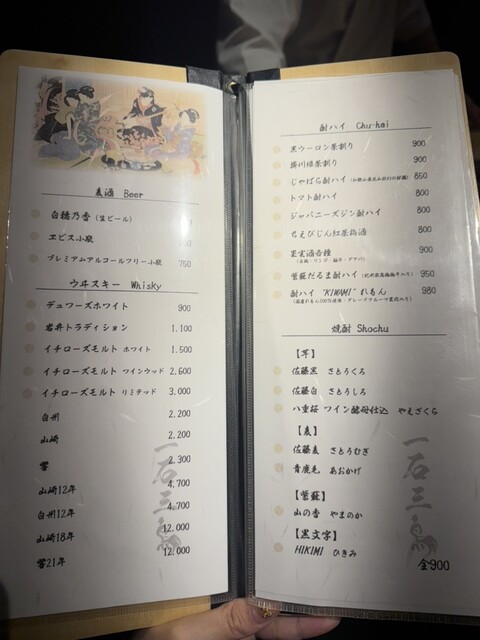 麦酒 Beer
白穂乃香 (生ビール)
ヱビス小瓶
プレミアムアルコールフリー小瓶 750
ウヰスキー Whisky
デュワーズホワイト 900
岩井トラディション 1.100
イチローズモルト ホワイト 1.500
イチローズモルト ワインウッド 2.600
イチローズモルト リミテッド 3.000
白州 2.200
山崎 2.200
響 2.300
山崎12年 4.700
白州12年 4.700
山崎18年 12.000
響21年 12.000
一石三鳥
酎ハイ Chu-hai
黒ウーロン茶割り 900
掛川緑茶割り 900
じゃばら酎ハイ 850
トマト酎ハイ 800
ジャパニーズジン酎ハイ 800
ちえびじん紅茶梅酒 800
果実酒各種 900
紫蘇だるま酎ハイ 950
酎ハイ "KIWAMI" れもん 980
焼酎 Shochu
【芋】
佐藤黒 さとうくろ
佐藤白 さとうしろ
八重桜 ワイン酵母仕込 やえざくら
【麦】
佐藤麦 さとうむぎ
青鹿毛 あおかげ
【紫蘇】
山の香 やまのか
【黒文字】
HIKIMI ひきみ
全900
一石三鳥